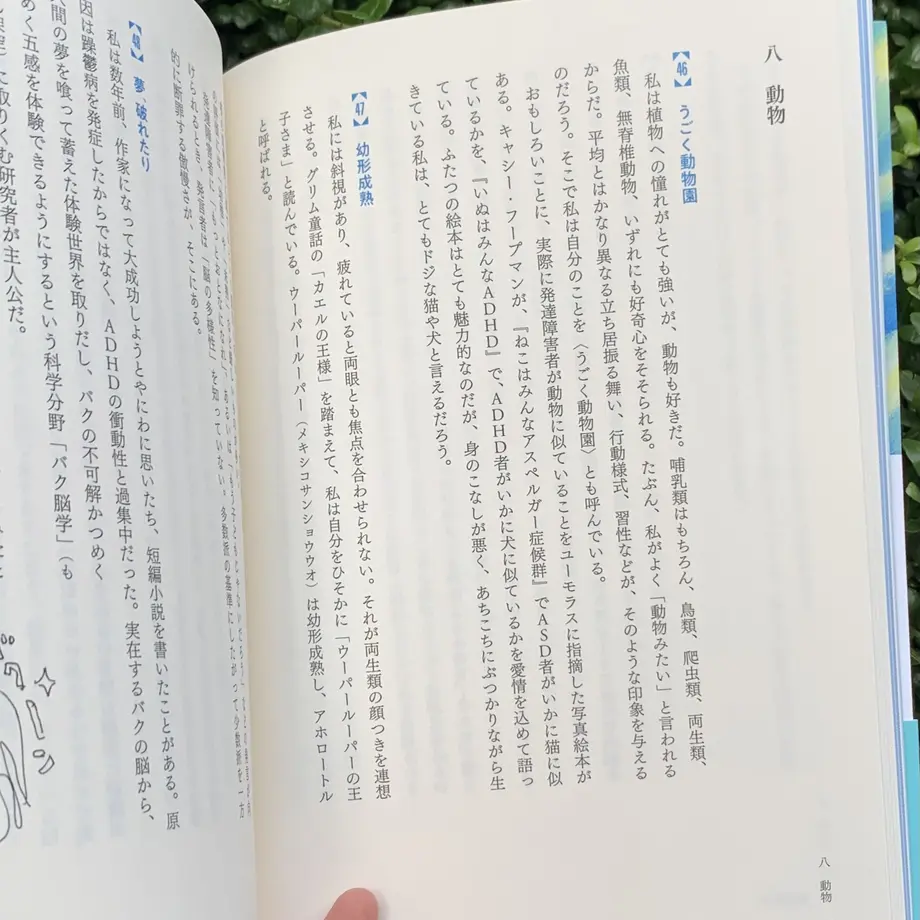 八　動物
【46】うごく動物園
私は植物への憧れがとても強いが、動物も好きだ。哺乳類はもちろん、鳥類、爬虫類、両生類、
魚類、無脊椎動物、いずれにも好奇心をそそられる。たぶん、私がよく「動物みたい」と言われる
からだ。平均とはかなり異なる立ち居振る舞い、行動様式、習性などが、そのような印象を与える
のだろう。そこで私は自分のことを〈うごく動物園〉とも呼んでいる。
おもしろいことに、実際に発達障害者が動物に似ていることをユーモラスに指摘した写真絵本が
ある。キャシー・フープマンが、『ねこはみんなアスペルガー症候群』でASD者がいかに猫に似
ているかを、『いぬはみんなADHD』で、ADHD者がいかに犬に似ているかを愛情を込めて語っ
ている。ふたつの絵本はとても魅力的なのだが、身のこなしが悪く、あちこちにぶつかりながら生
きている私は、とてもドジな猫や犬と言えるだろう。
【47】幼形成熟
私には斜視があり、疲れていると両眼とも焦点を合わせられない。それが両生類の顔つきを連想
させる。グリム童話の「カエルの王様」を踏まえて、私は自分をひそかに「ウーパールーパーの王
子さま」と読んでいる。ウーパールーパー（メキシコサンショウウオ）は幼形成熟し、アホロートル
と呼ばれる。
八　動物
けられるとき、発言者は「脳の多様性」を知っていない。多数派の基準にしたがって少数派を一方
的に断罪する傲慢さが、そこにある。
【48】夢、破れたり
私は数年前、作家になって大成功しようとやにわに思いたち、短編小説を書いたことがある。原
因は躁鬱病を発症したからではなく、ADHDの衝動性と過集中だった。実在するバクの脳から、
人間の夢を喰って蓄えた体験世界を取りだし、バクの不可解かつめく
めく五感を体験できるようにするという科学分野「バク脳学」（も
に取りくむ研究者が主人公だ。